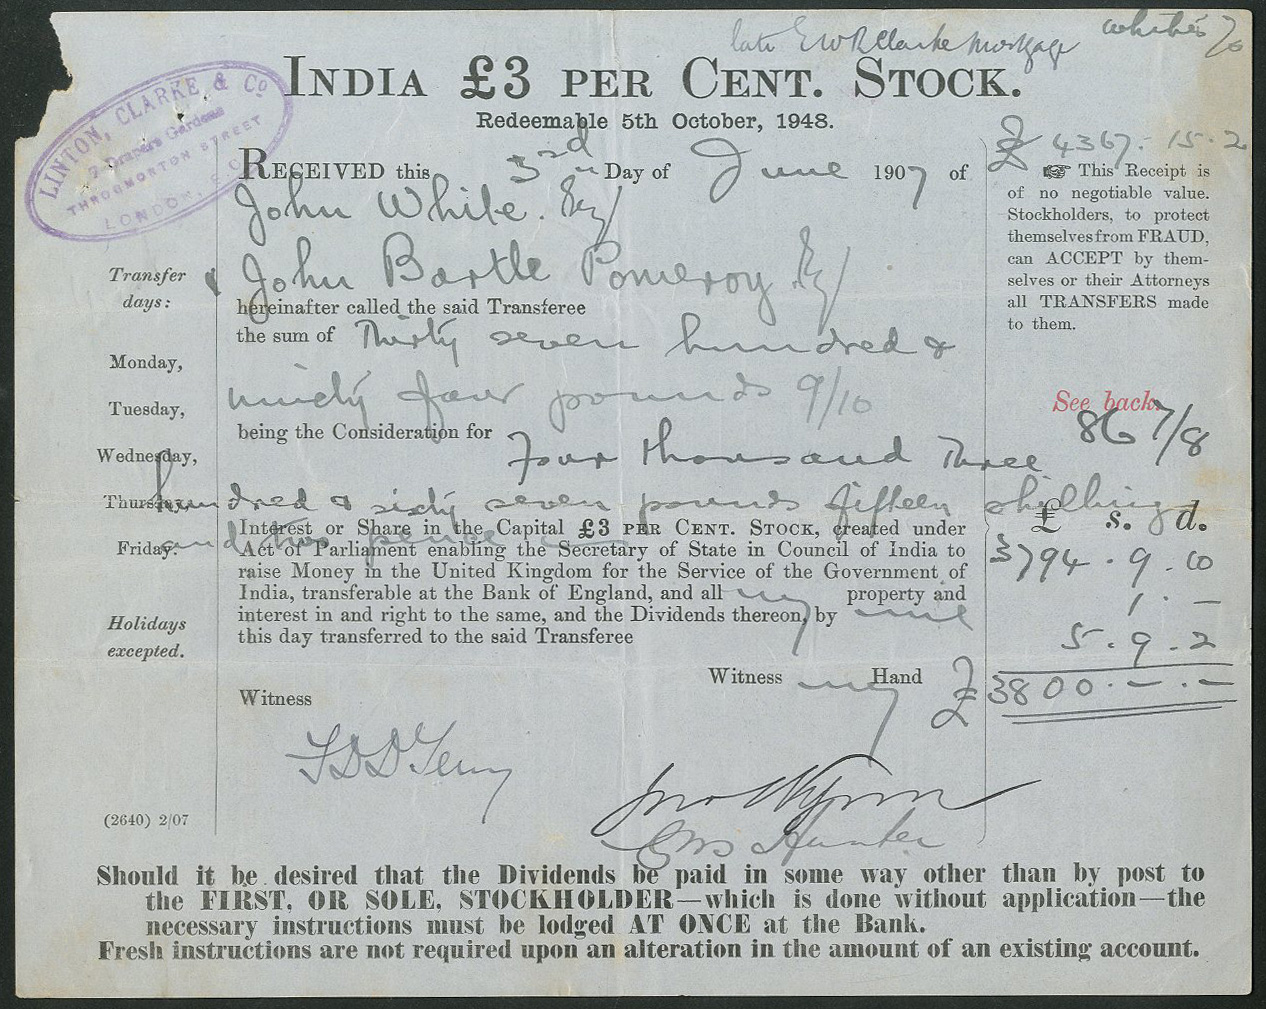 late E W R Clarke Mortgage
INDIA £3 PER CENT. STOCK.
Redeemable 5th October, 1948.
LINTON, CLARKE & Co
7 Drapers Gardens
THROGMORTON STREET
LONDON, E.C.
RECEIVED this 3rd Day of June 1907 of
£4367. 15. 2
John White. Esq/
& John Bartle Pomeroy Esq/
hereinafter called the said Transferee
the sum of Thirty seven hundred &
ninety four pounds 9/10
being the Consideration for Four thousand Three
hundred & sixty seven pounds fifteen shillings
and two pence
Interest or Share in the Capital £3 PER CENT. STOCK, created under
Act of Parliament enabling the Secretary of State in Council of India to
raise Money in the United Kingdom for the Service of the Government of
India, transferable at the Bank of England, and all my property and
interest in and right to the same, and the Dividends thereon, by me
this day transferred to the said Transferee
Witness my Hand
Witness
Transfer
days:
Monday,
Tuesday,
Wednesday,
Thursday,
Friday.
Holidays
excepted.
(2640) 2/07
This Receipt is
of no negotiable value.
Stockholders, to protect
themselves from FRAUD,
can ACCEPT by them-
selves or their Attorneys
all TRANSFERS made
to them.
See back.
86 7/8
£ s. d.
3794 . 9 . 10
1 . –
5 . 9 . 2
£3800 . – . –
Hunter
Should it be desired that the Dividends be paid in some way other than by post to
the FIRST, OR SOLE, STOCKHOLDER—which is done without application—the
necessary instructions must be lodged AT ONCE at the Bank.
Fresh instructions are not required upon an alteration in the amount of an existing account.